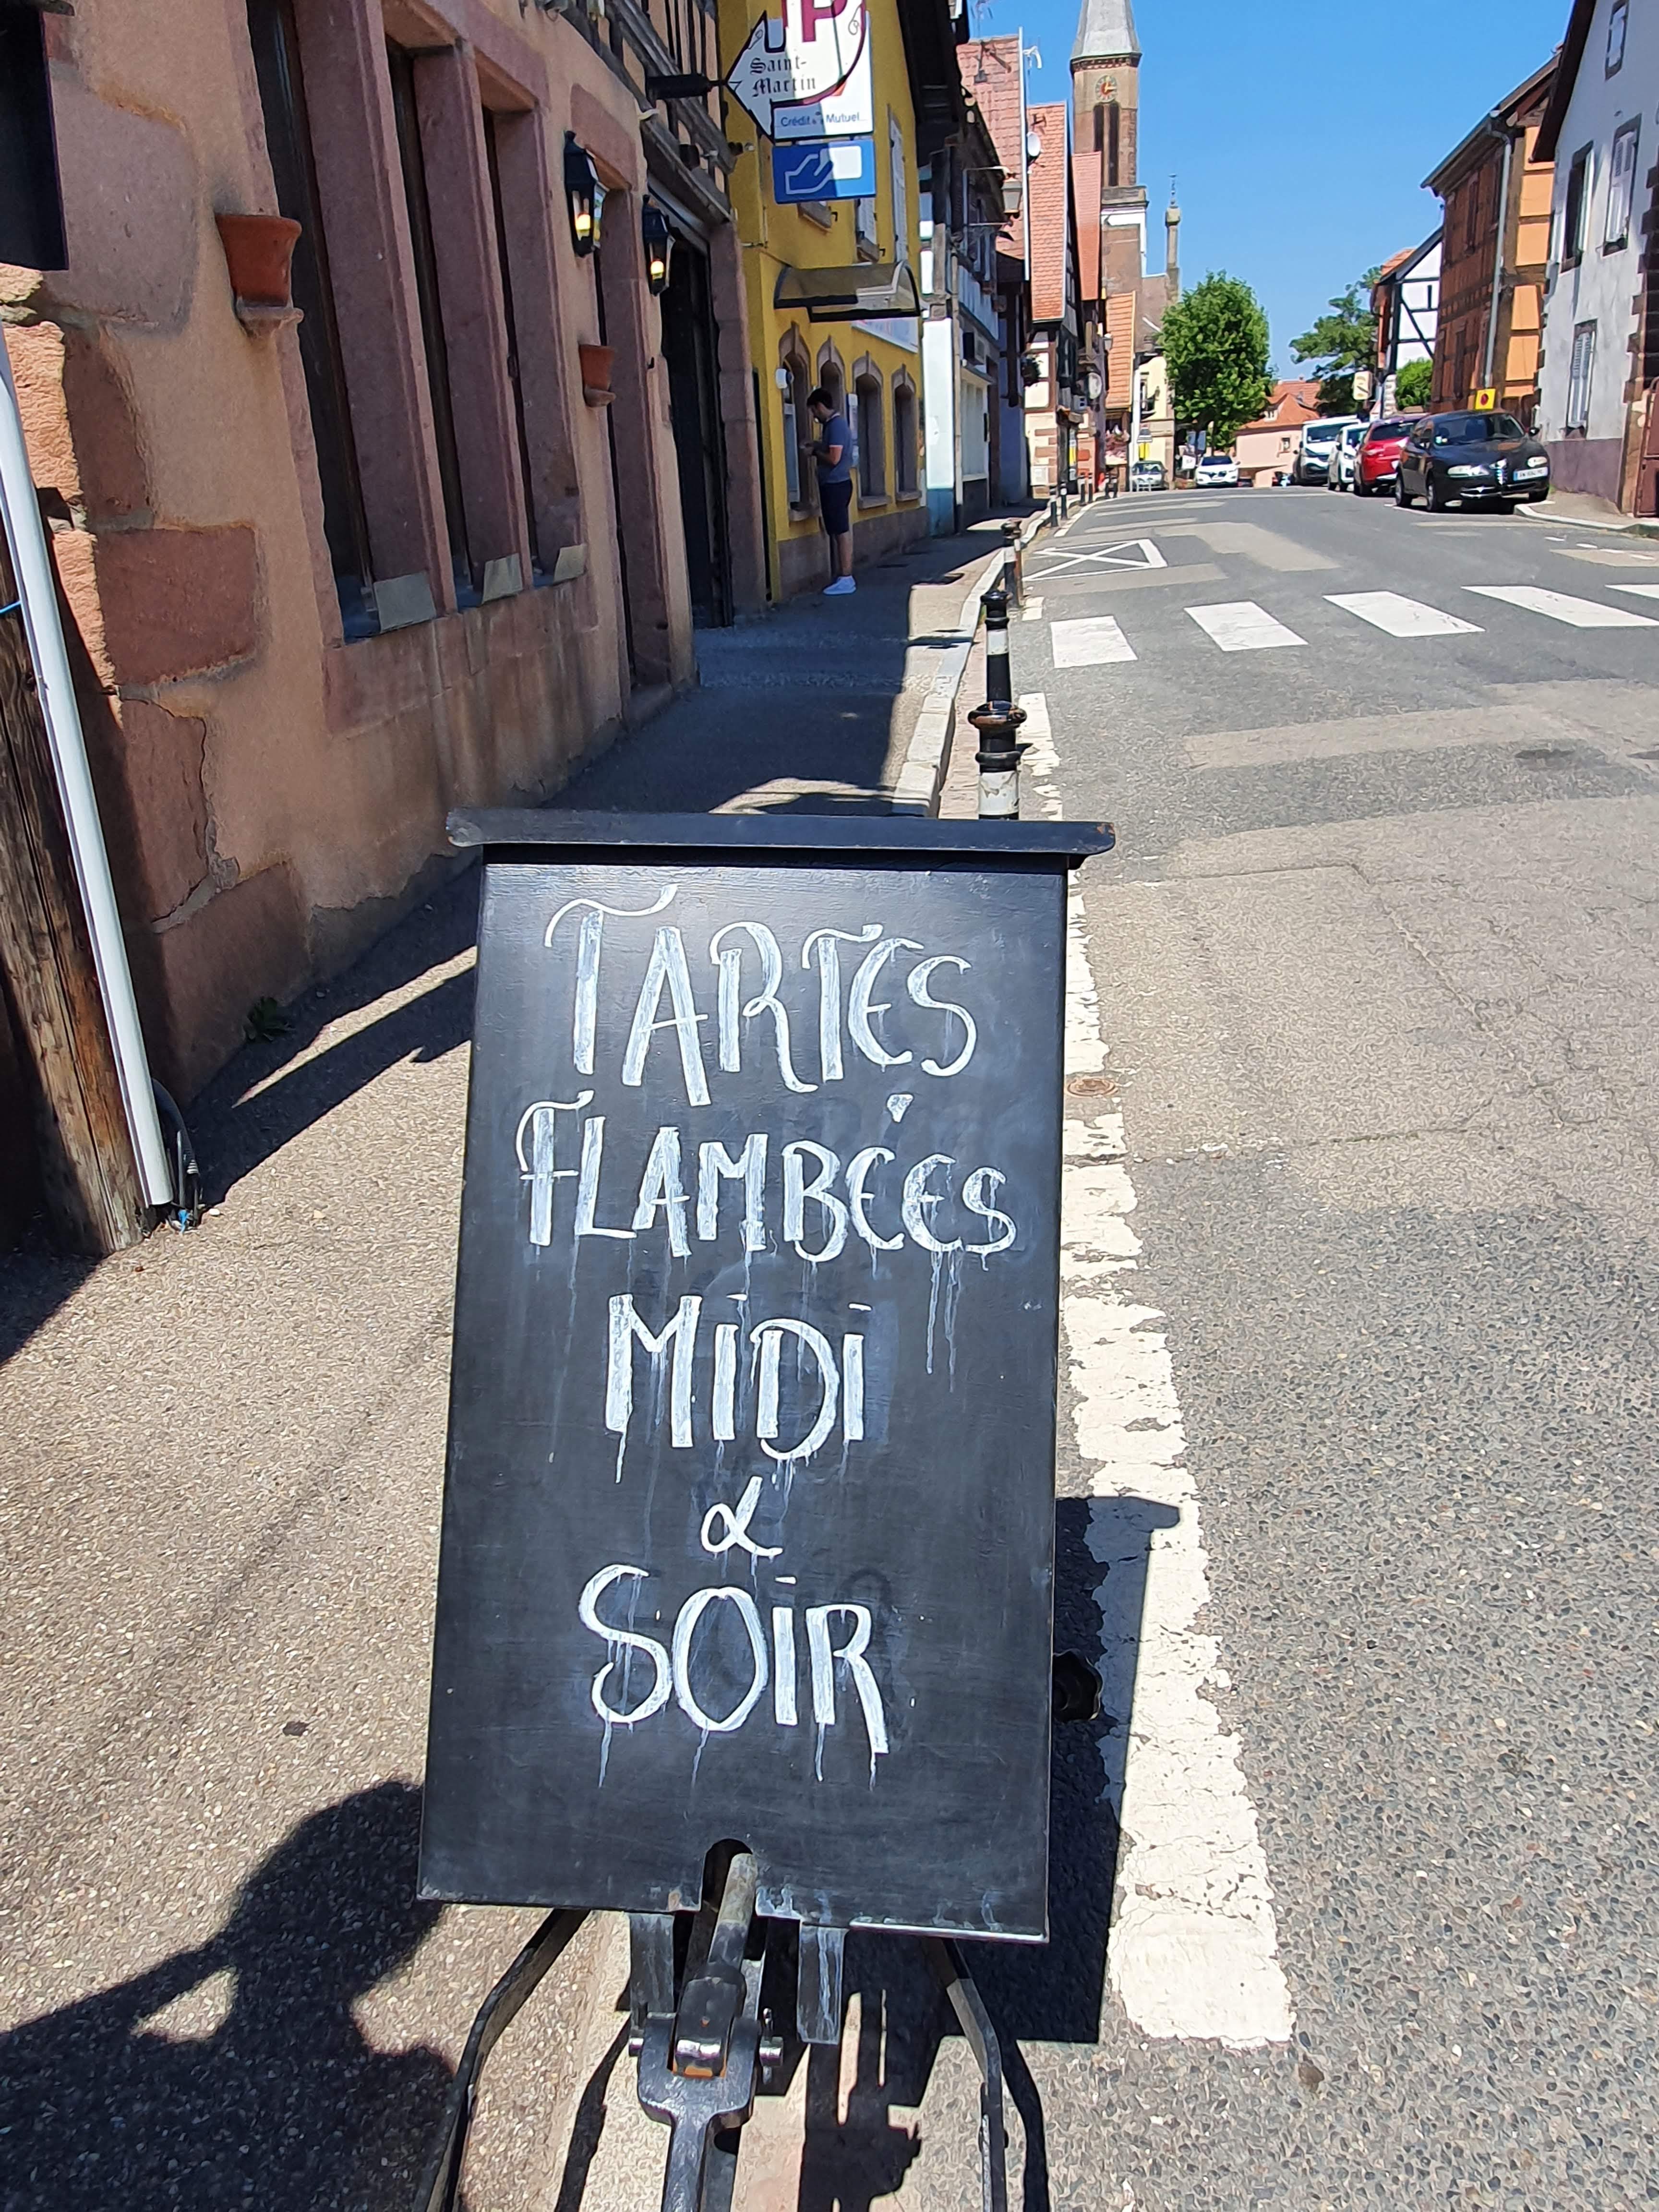 Saint-
Martin
Crédit Mutuel
TARTES
FLAMBÉES
MiDi
&
SOiR